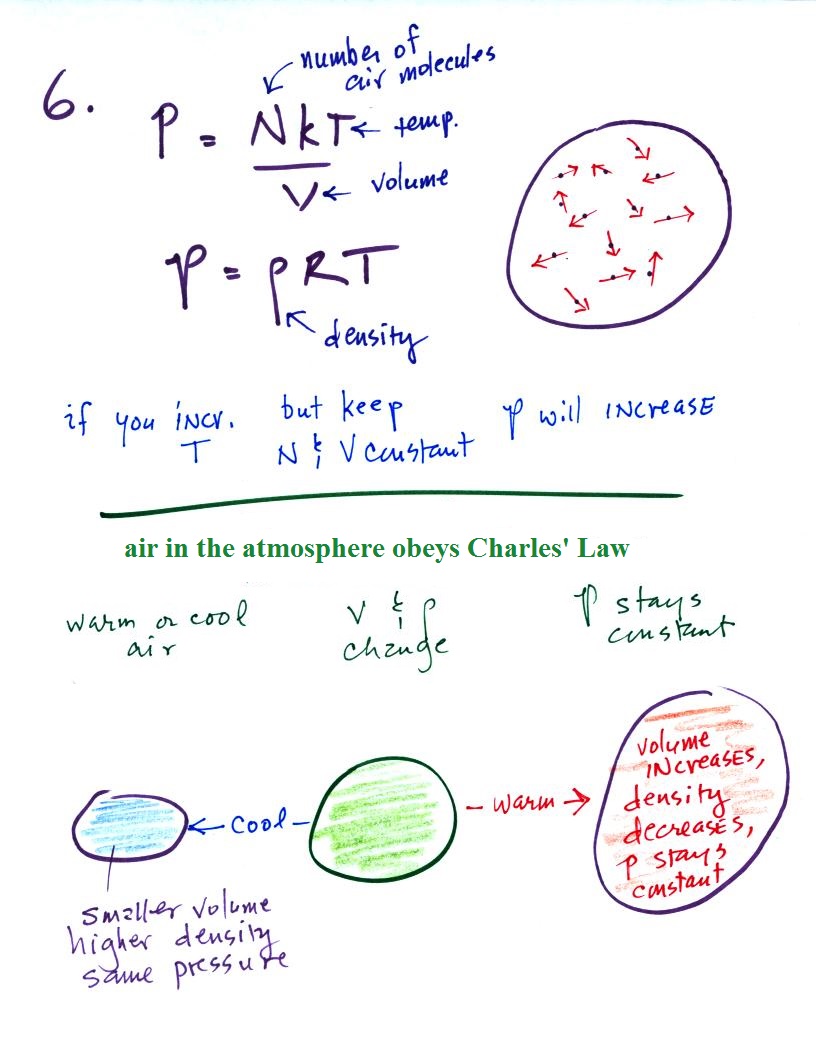 number of
air molecules
6.
P = NkT ← temp.
V ← volume
P = ρRT
density
if you incr. but keep P will increase
T N & V constant
air in the atmosphere obeys Charles' Law
warm or cool V & ρ P stays
air change constant
volume
increases,
density
decreases,
P stays
constant
← cool – – warm →
smaller volume
higher density
same pressure